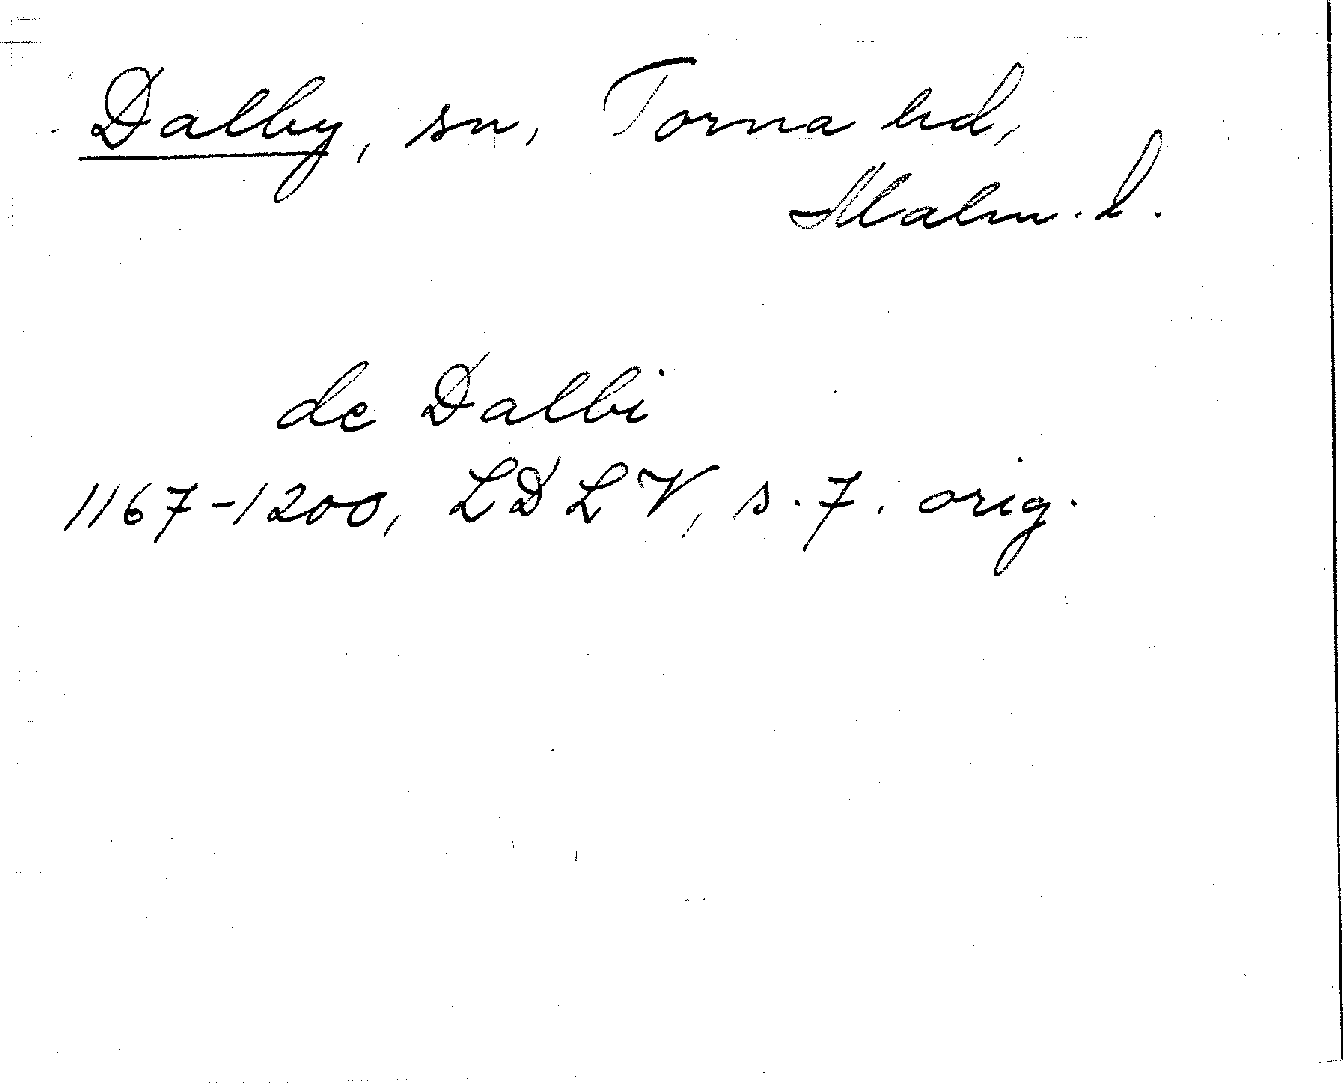 Dalby, sn, Torna hd,
Malm. l.
de Dalbi
1167-1200, LDLV, s. 7. orig.